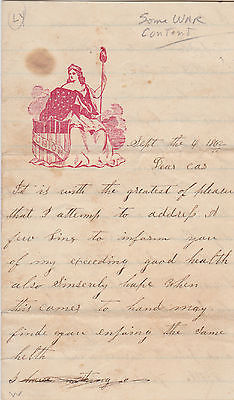 LY
Some WAR
Content
Sept the 4 1862
Dear cas
It is with the greatest of pleasur
that I attemp to address A
few line to inform you
of my exceeding good health
also Sincerly hope when
this comes to hand may
finde your enjoying the same
helth
I have nothing